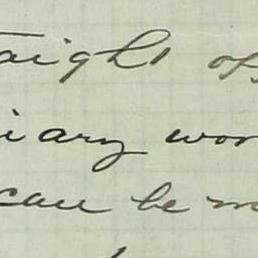 aight of
iary wor
can be m